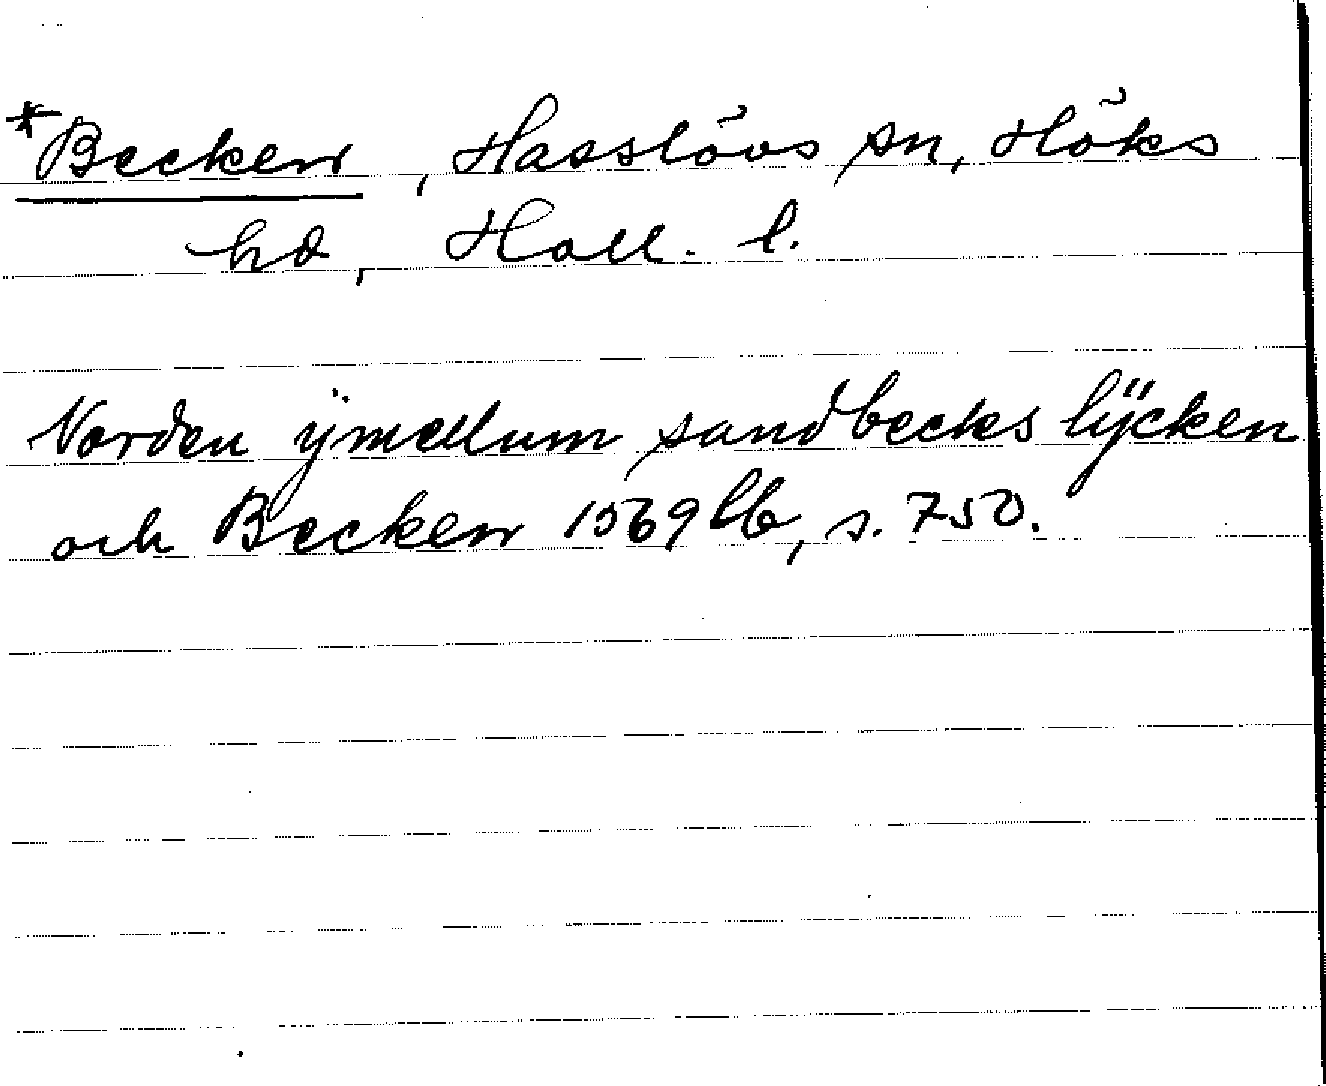 *Becken, Hasslövs sn, Höks
hd, Hall. l.
Norden ÿmellum sandbecks lÿcken
och Becken 1569 lb, s. 750.